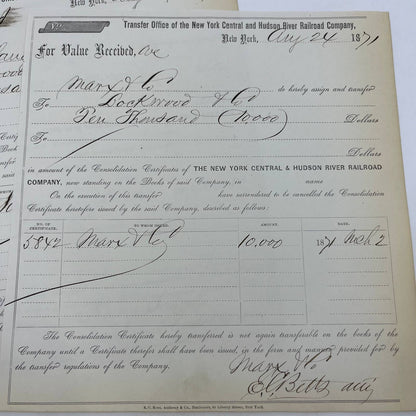 No.
Transfer Office of the New York Central and Hudson River Railroad Company,
New York, Aug 24 1871
For Value Received, we
Marx & Co do hereby assign and transfer
To Lockwood & Co
Ten Thousand (10,000) Dollars
Dollars
in amount of the Consolidation Certificates of THE NEW YORK CENTRAL & HUDSON RIVER RAILROAD
COMPANY, now standing on the Books of said Company, in name
On the execution of this transfer have surrendered to be cancelled the Consolidation
Certificate heretofore issued by the said Company, described as follows:
NO. OF CERTIFICATE. TO WHOM ISSUED. AMOUNT. DATE.
5842 Marx & Co 10,000 1871 Mch 2
The Consolidation Certificate hereby transferred is not again transferable on the books of the
Company until a Certificate therefor shall have been issued, in the form and manner provided for by
the transfer regulations of the Company.
Marx & Co
E. C. Betts atty